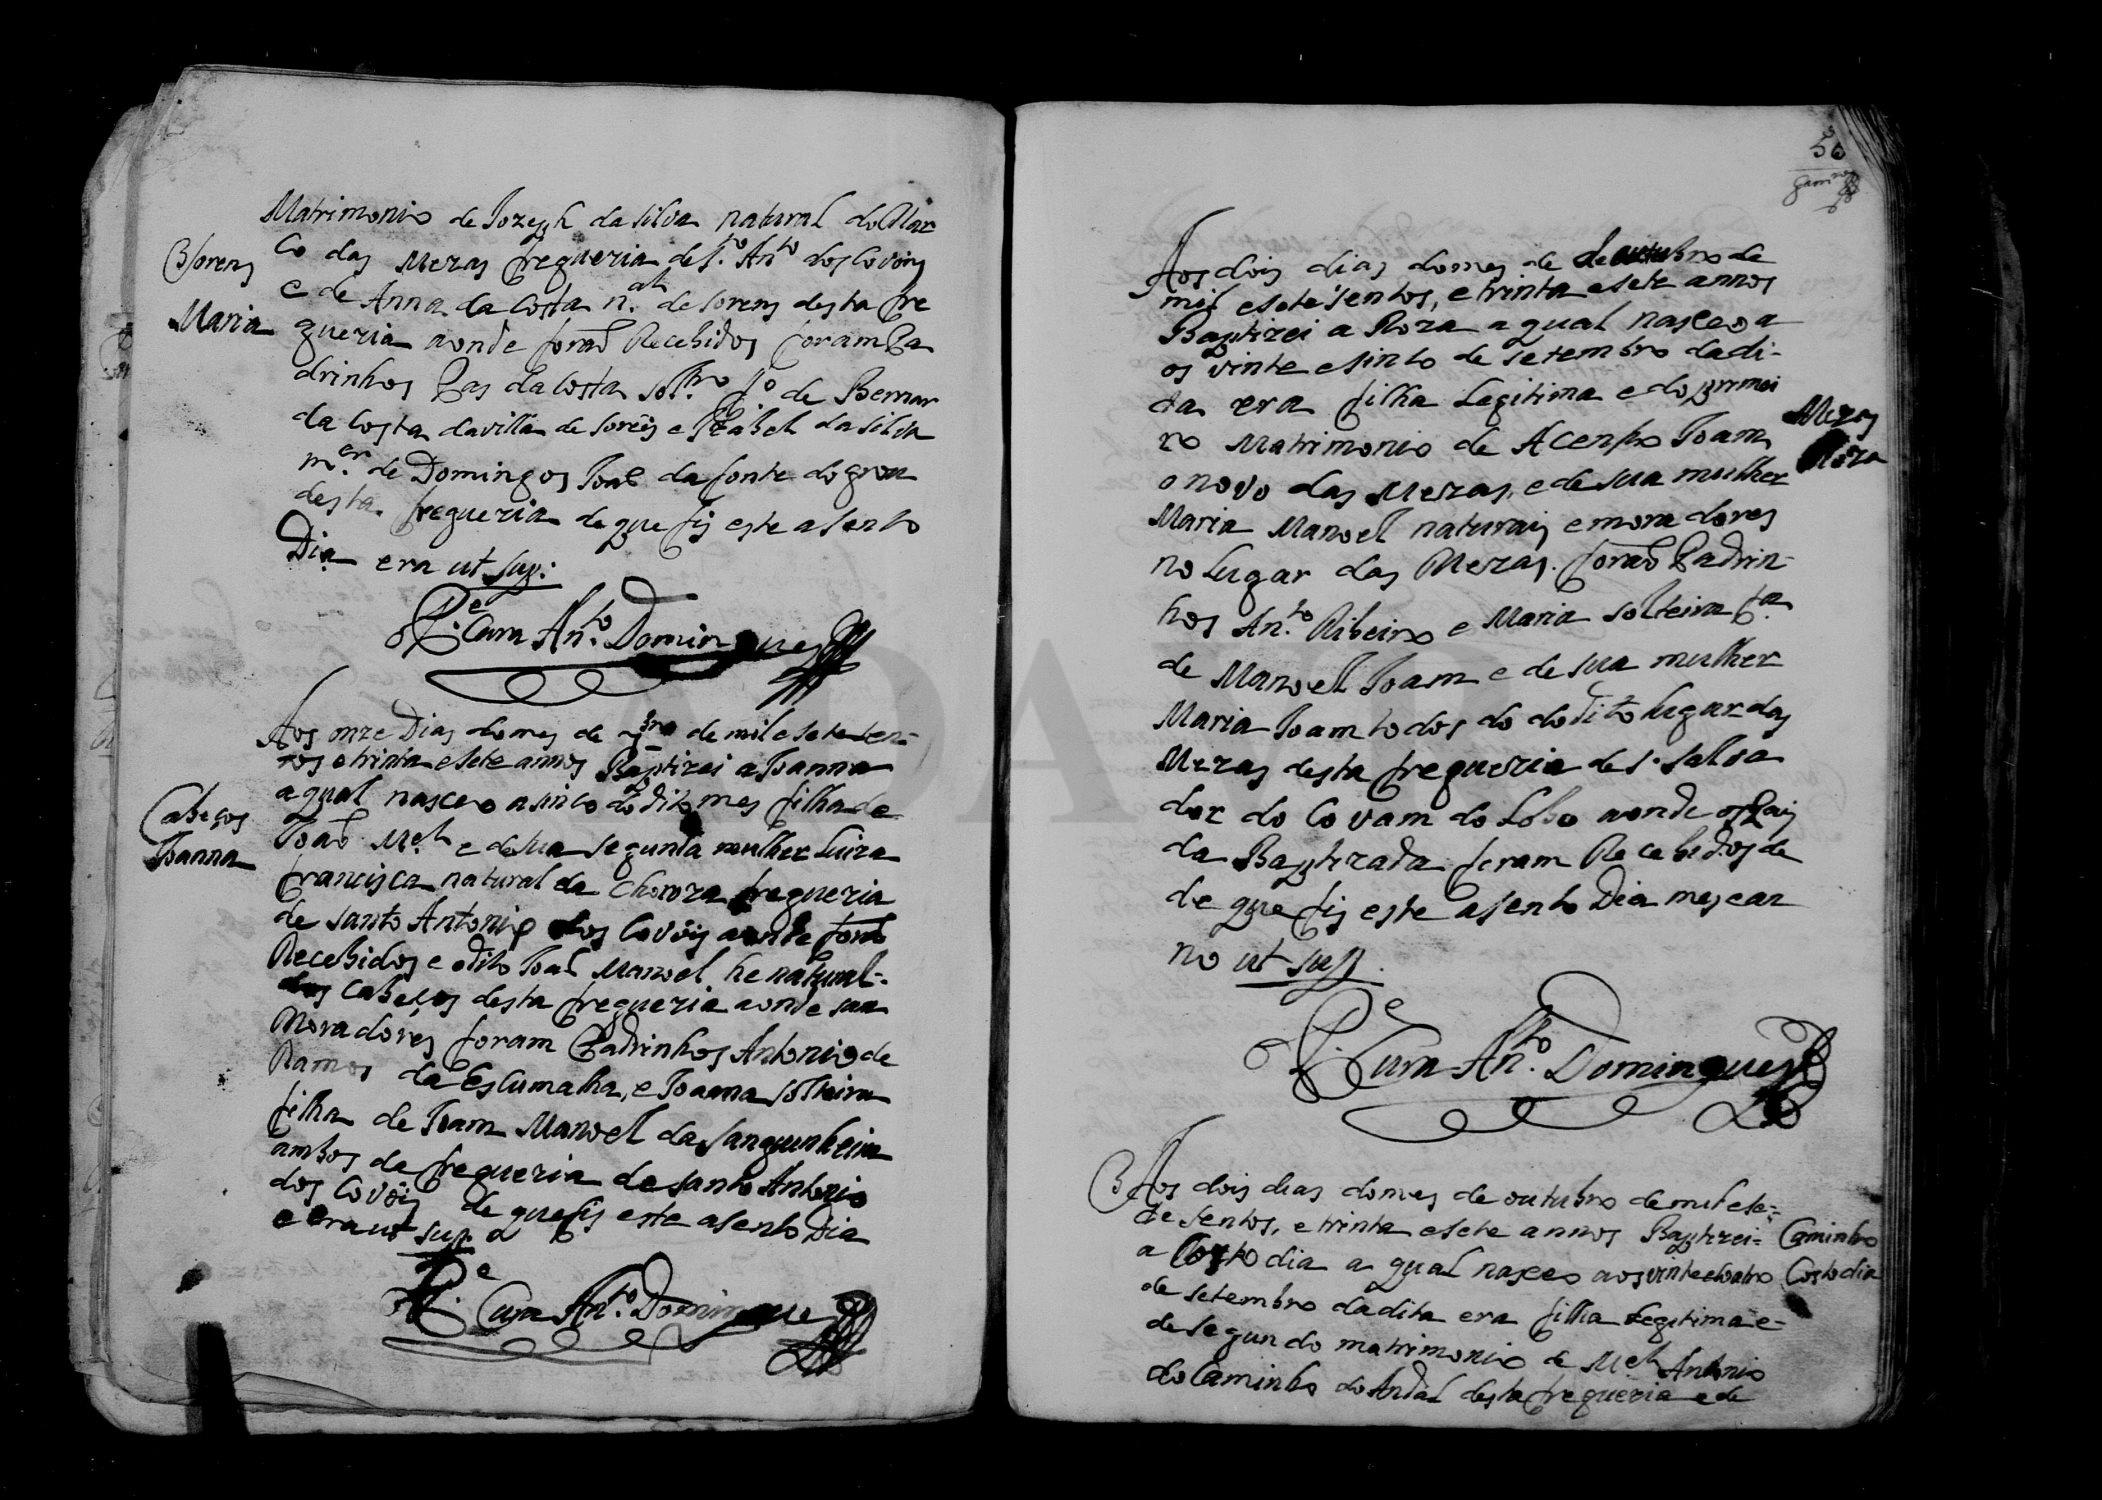 Matrimonio de Jozeph da Silva natural do Mar
co das Mezas freguezia de S.to An.to dos Covõis
e de Anna da Costa n.al de Sorens desta fre
guezia aonde foraõ Recebidos foram Pa
drinhos da Costa solt.ro f.o de Bernar
da Costa davilla de Sorẽs e Izabel da Silva
m.er de Domingos Joaõ da fonte do grou
desta freguezia de que fis este asento
Dia era ut sup:
O P.e Cura An.to Domingues
Sorens
Maria
Aos onze Dias do mes de 7bro de mil e sete sen-
tos e trinta e sete annos Baptizei a Joanna
a qual nasceo a sinco do dito mes filha de
Joaõ M.el e de sua segunda mulher Luiza
francisca natural da Choroza freguezia
de Santo Antonio dos Covõis aonde foraõ
Recebidos e o dito Joaõ Manoel he natural-
dos Cabesos desta freguezia aonde sam
Moradores foram Padrinhos Antonio de
Ramos da Escumalha, e Joanna solteira
filha de Joam Manoel da Sanguinheira
ambos da freguezia de Santo Antonio
dos Covõis de que fis este asento Dia
e era ut sup.a
O P.e Cura An.to Domingues
Cabesos
Joanna
50
Aos dois dias do mes de de outubro de
mil e sete sentos, e trinta e sete annos
Baptizei a Roza a qual nasceo a
os vinte e sinco de setembro da di-
ta era filha Legitima e do primei
ro Matrimonio de Acenso Joam
o novo das Mezas, e de sua mulher
Maria Manoel naturais e moradores
no Lugar das Mezas. foraõ Padrin-
hos An.to Ribeiro e Maria solteira f.a
de Manoel Joam e de sua mulher
Maria Joam todos do do dito lugar das
Mezas desta freguezia de S. Salva
dor do Covam do Lobo aonde os Pais
da Baptizada foram Recebidos de
de que fis este asento Dia mes e an
no ut sup.
O P.e Cura An.to Domingues
Mezas
Roza
Aos dois dias do mes de outubro de mil e se-
te sentos, e trinta e sete annos Baptizei-
a Costodia a qual nasceo aos vinte e coatro
de setembro da dita era filha Legitima e-
de segundo matrimonio de M.el Antonio
do Caminho do Andal desta freguezia e de
Caminho
Costodia
ADAVR